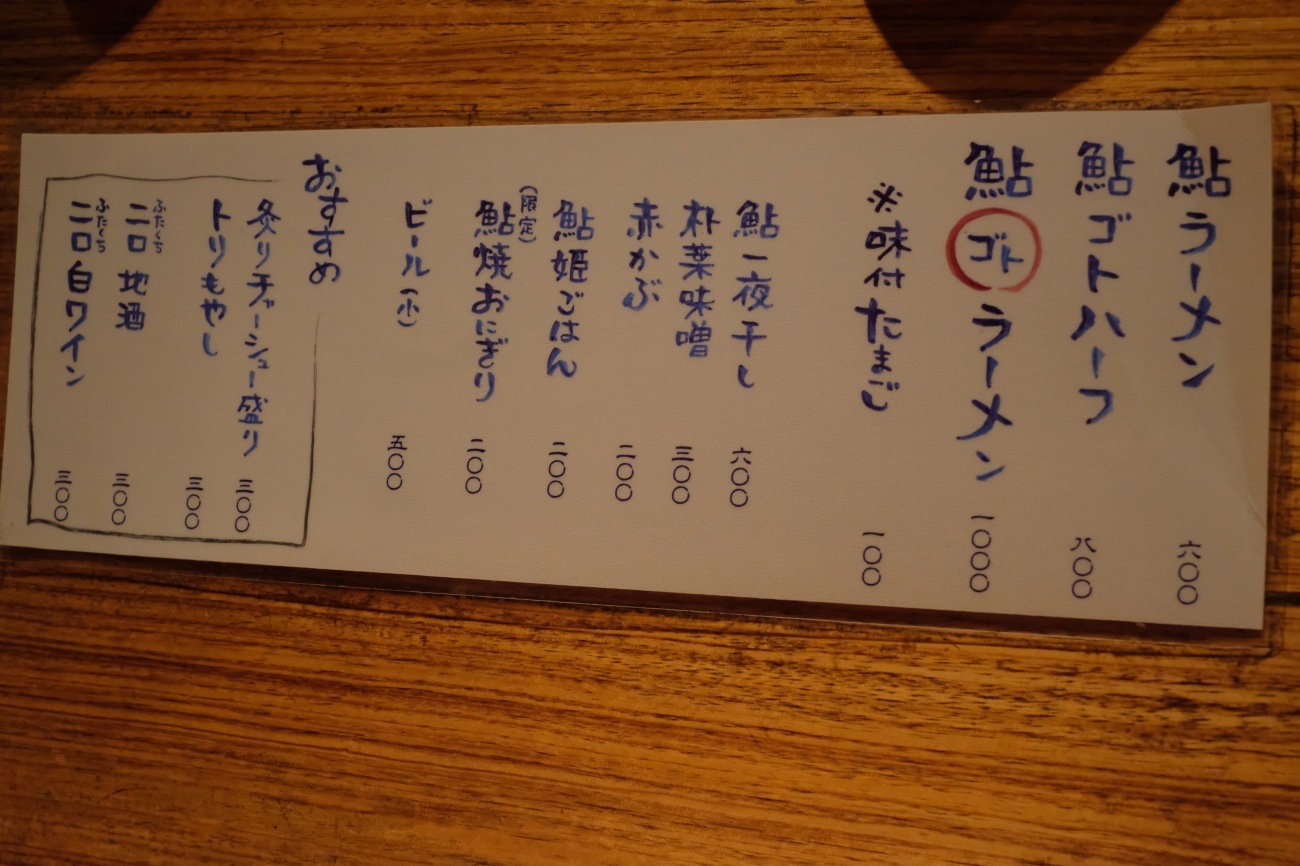 鮎ラーメン 六〇〇
鮎ゴトハーフ 八〇〇
鮎ゴトラーメン 一〇〇〇
※味付たまご 一〇〇
鮎一夜干し 六〇〇
朴葉味噌 三〇〇
赤かぶ 二〇〇
鮎姫ごはん 二〇〇
(限定)
鮎焼おにぎり 二〇〇
ビール(小) 五〇〇
おすすめ
炙りチャーシュー盛り 三〇〇
トリもやし 三〇〇
ふたくち
二口地酒 三〇〇
ふたくち
二口白ワイン 三〇〇